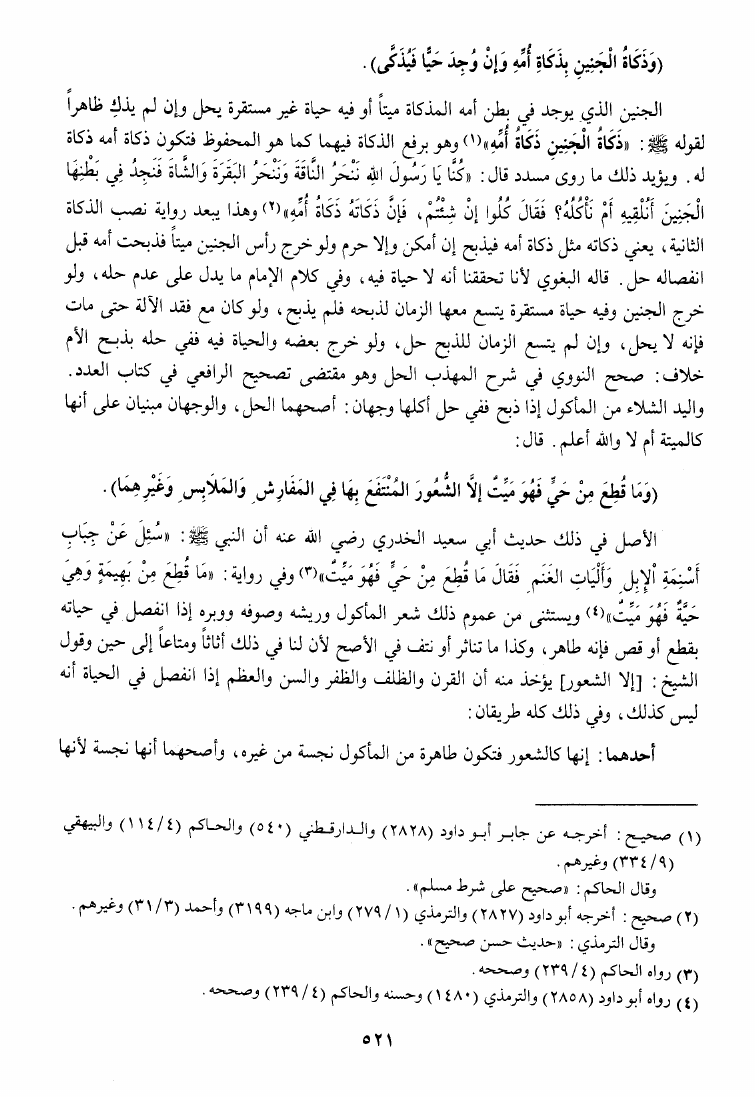 (وَذَكَاةُ الْجَنِينِ بِذَكَاةِ أُمِّهِ وَإِنْ وُجِدَ حَيًّا فَيُذَكَّى).
الجنين الذي يوجد في بطن أمه المذكاة ميتاً أو فيه حياة غير مستقرة يحل وإن لم يذكِ ظاهراً
لقوله ﷺ: «ذَكَاةُ الْجَنِينِ ذَكَاةُ أُمِّهِ»(١) وهو برفع الذكاة فيهما كما هو المحفوظ فتكون ذكاة أمه ذكاة
له. ويؤيد ذلك ما روى مسدد قال: «كُنَّا يَا رَسُولَ اللهِ نَنْحَرُ النَّاقَةَ وَنَنْحَرُ البَقَرَةَ وَالشَّاةَ فَنَجِدُ فِي بَطْنِهَا
الْجَنِينَ أَنُلْقِيهِ أَمْ نَأْكُلُهُ؟ فَقَالَ كُلُوا إِنْ شِئْتُمْ، فَإِنَّ ذَكَاتَهُ ذَكَاةُ أُمِّهِ»(٢) وهذا يبعد رواية نصب الذكاة
الثانية، يعني ذكاته مثل ذكاة أمه فيذبح إن أمكن وإلا حرم ولو خرج رأس الجنين ميتاً فذبحت أمه قبل
انفصاله حل. قاله البغوي لأنا تحققنا أنه لا حياة فيه، وفي كلام الإمام ما يدل على عدم حله، ولو
خرج الجنين وفيه حياة مستقرة يتسع معها الزمان لذبحه فلم يذبح، ولو كان مع فقد الآلة حتى مات
فإنه لا يحل، وإن لم يتسع الزمان للذبح حل، ولو خرج بعضه والحياة فيه ففي حله بذبح الأم
خلاف: صحح النووي في شرح المهذب الحل وهو مقتضى تصحيح الرافعي في كتاب العدد.
واليد الشلاء من المأكول إذا ذبح ففي حل أكلها وجهان: أصحهما الحل، والوجهان مبنيان على أنها
كالميتة أم لا والله أعلم. قال:
(وَمَا قُطِعَ مِنْ حَيٍّ فَهُوَ مَيِّتٌ إلاَّ الشُّعُورَ المُنْتَفَعَ بِهَا فِي المَفَارِشِ وَالمَلَابِسِ وَغَيْرِهِمَا).
الأصل في ذلك حديث أبي سعيد الخدري رضي الله عنه أن النبي ﷺ: «سُئِلَ عَنْ جِبَابِ
أَسْنِمَةِ الْإِبِلِ وَأَلْيَاتِ الغَنَمِ فَقَالَ مَا قُطِعَ مِنْ حَيٍّ فَهُوَ مَيِّتٌ»(٣) وفي رواية: «مَا قُطِعَ مِنْ بَهِيمَةٍ وَهِيَ
حَيَّةٌ فَهُوَ مَيِّتٌ»(٤) ويستثنى من عموم ذلك شعر المأكول وريشه وصوفه ووبره إذا انفصل في حياته
بقطع أو قص فإنه طاهر، وكذا ما تناثر أو نتف في الأصح لأن لنا في ذلك أثاثاً ومتاعاً إلى حين وقول
الشيخ: [إلا الشعور] يؤخذ منه أن القرن والظلف والظفر والسن والعظم إذا انفصل في الحياة أنه
ليس كذلك، وفي ذلك كله طريقان:
أحدهما: إنها كالشعور فتكون طاهرة من المأكول نجسة من غيره، وأصحهما أنها نجسة لأنها
(١) صحيح: أخرجه عن جابر أبو داود (٢٨٢٨) والدارقطني (٥٤٠) والحاكم (١١٤/٤) والبيهقي
(٣٣٤/٩) وغيرهم.
وقال الحاكم: «صحيح على شرط مسلم».
(٢) صحيح: أخرجه أبو داود (٢٨٢٧) والترمذي (٢٧٩/١) وابن ماجه (٣١٩٩) وأحمد (٣١/٣) وغيرهم.
وقال الترمذي: «حديث حسن صحيح».
(٣) رواه الحاكم (٢٣٩/٤) وصححه.
(٤) رواه أبو داود (٢٨٥٨) والترمذي (١٤٨٠) وحسنه والحاكم (٢٣٩/٤) وصححه.
٥٢١